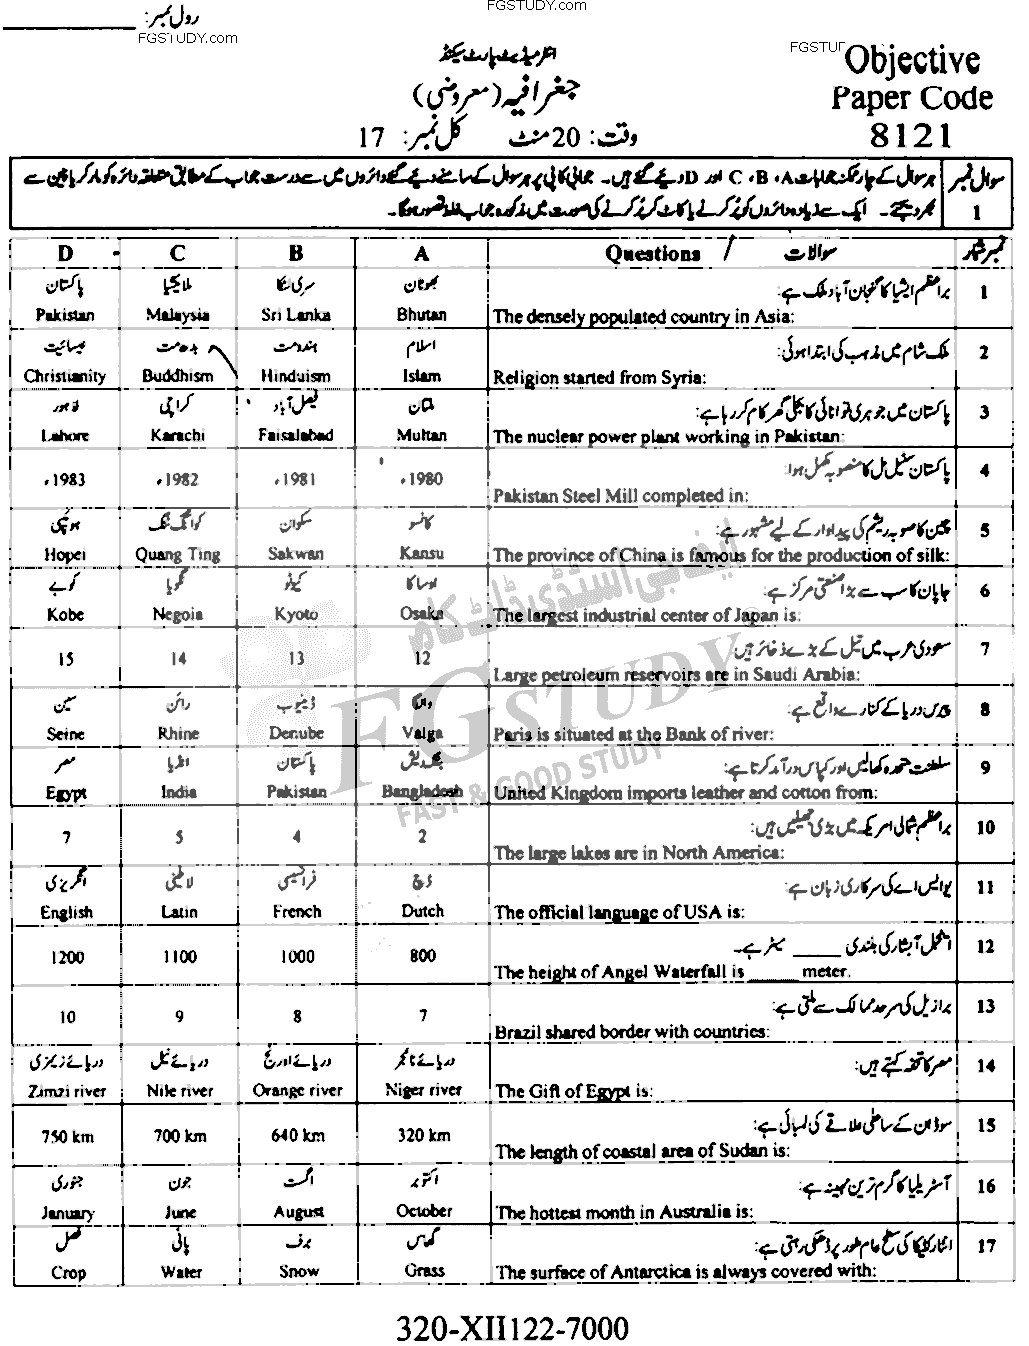 FGSTUDY.com
رول نمبر:
FGSTUDY.com
انٹرمیڈیٹ پارٹ سیکنڈ
جغرافیہ (معروضی)
وقت: 20 منٹ کل نمبر: 17
Objective
Paper Code
8121
سوال نمبر 1
ہر سوال کے چار ممکنہ جوابات A، B، C اور D دیئے گئے ہیں۔ جوابی کاپی پر ہر سوال کے سامنے دیئے گئے دائروں میں سے درست جواب کے مطابق متعلقہ دائرہ کو مارکر یا پین سے
بھر دیجئے۔ ایک سے زیادہ دائروں کو پُر کرنے یا کاٹ کر پُر کرنے کی صورت میں مذکورہ جواب غلط تصور ہوگا۔
D C B A Questions / سوالات نمبر شمار
پاکستان ملائیشیا سری لنکا بھوٹان براعظم ایشیا کا گنجان آباد ملک ہے: 1
Pakistan Malaysia Sri Lanka Bhutan The densely populated country in Asia:
عیسائیت بدھ مت ہندومت اسلام ملک شام میں مذہب کی ابتدا ہوئی: 2
Christianity Buddhism Hinduism Islam Religion started from Syria:
لاہور کراچی فیصل آباد ملتان پاکستان میں جوہری توانائی کا بجلی گھر کام کر رہا ہے: 3
Lahore Karachi Faisalabad Multan The nuclear power plant working in Pakistan:
پاکستان سٹیل مل کا منصوبہ مکمل ہوا: 4
1983ء 1982ء 1981ء 1980ء Pakistan Steel Mill completed in:
ہوپئی کوانگ تنگ سکوان کانسو چین کا صوبہ ریشم کی پیداوار کے لیے مشہور ہے: 5
Hopei Quang Ting Sakwan Kansu The province of China is famous for the production of silk:
کوبے نگویا کیوٹو اوساکا جاپان کا سب سے بڑا صنعتی مرکز ہے: 6
Kobe Negoia Kyoto Osaka The largest industrial center of Japan is:
سعودی عرب میں تیل کے بڑے ذخائر ہیں: 7
15 14 13 12 Large petroleum reservoirs are in Saudi Arabia:
سین رائن ڈینیوب والگا پیرس دریا کے کنارے واقع ہے: 8
Seine Rhine Denube Valga Paris is situated at the Bank of river:
مصر انڈیا پاکستان بنگلہ دیش سلطنت متحدہ کھالیں اور کپاس درآمد کرتا ہے: 9
Egypt India Pakistan Bangladesh United Kingdom imports leather and cotton from:
براعظم شمالی امریکہ میں بڑی جھیلیں ہیں: 10
7 5 4 2 The large lakes are in North America:
انگریزی لاطینی فرانسیسی ڈچ یو ایس اے کی سرکاری زبان ہے: 11
English Latin French Dutch The official language of USA is:
اینجل آبشار کی بلندی _____ میٹر ہے۔ 12
1200 1100 1000 800 The height of Angel Waterfall is _____ meter.
برازیل کی سرحد ممالک سے ملتی ہے: 13
10 9 8 7 Brazil shared border with countries:
دریائے زیمزی دریائے نیل دریائے اورنج دریائے نائجر مصر کا تحفہ کہتے ہیں: 14
Zimzi river Nile river Orange river Niger river The Gift of Egypt is:
سوڈان کے ساحلی علاقے کی لمبائی ہے: 15
750 km 700 km 640 km 320 km The length of coastal area of Sudan is:
جنوری جون اگست اکتوبر آسٹریلیا کا گرم ترین مہینہ ہے: 16
January June August October The hottest month in Australia is:
فصل پانی برف گھاس انٹارکٹیکا کی سطح عام طور پر ڈھکی رہتی ہے: 17
Crop Water Snow Grass The surface of Antarctica is always covered with:
ایف جی اسٹڈی ڈاٹ کام
FGSTUDY
FAST & GOOD STUDY
320-XII122-7000